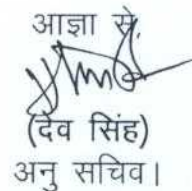 आज्ञा से,
(देव सिंह)
अनु सचिव।